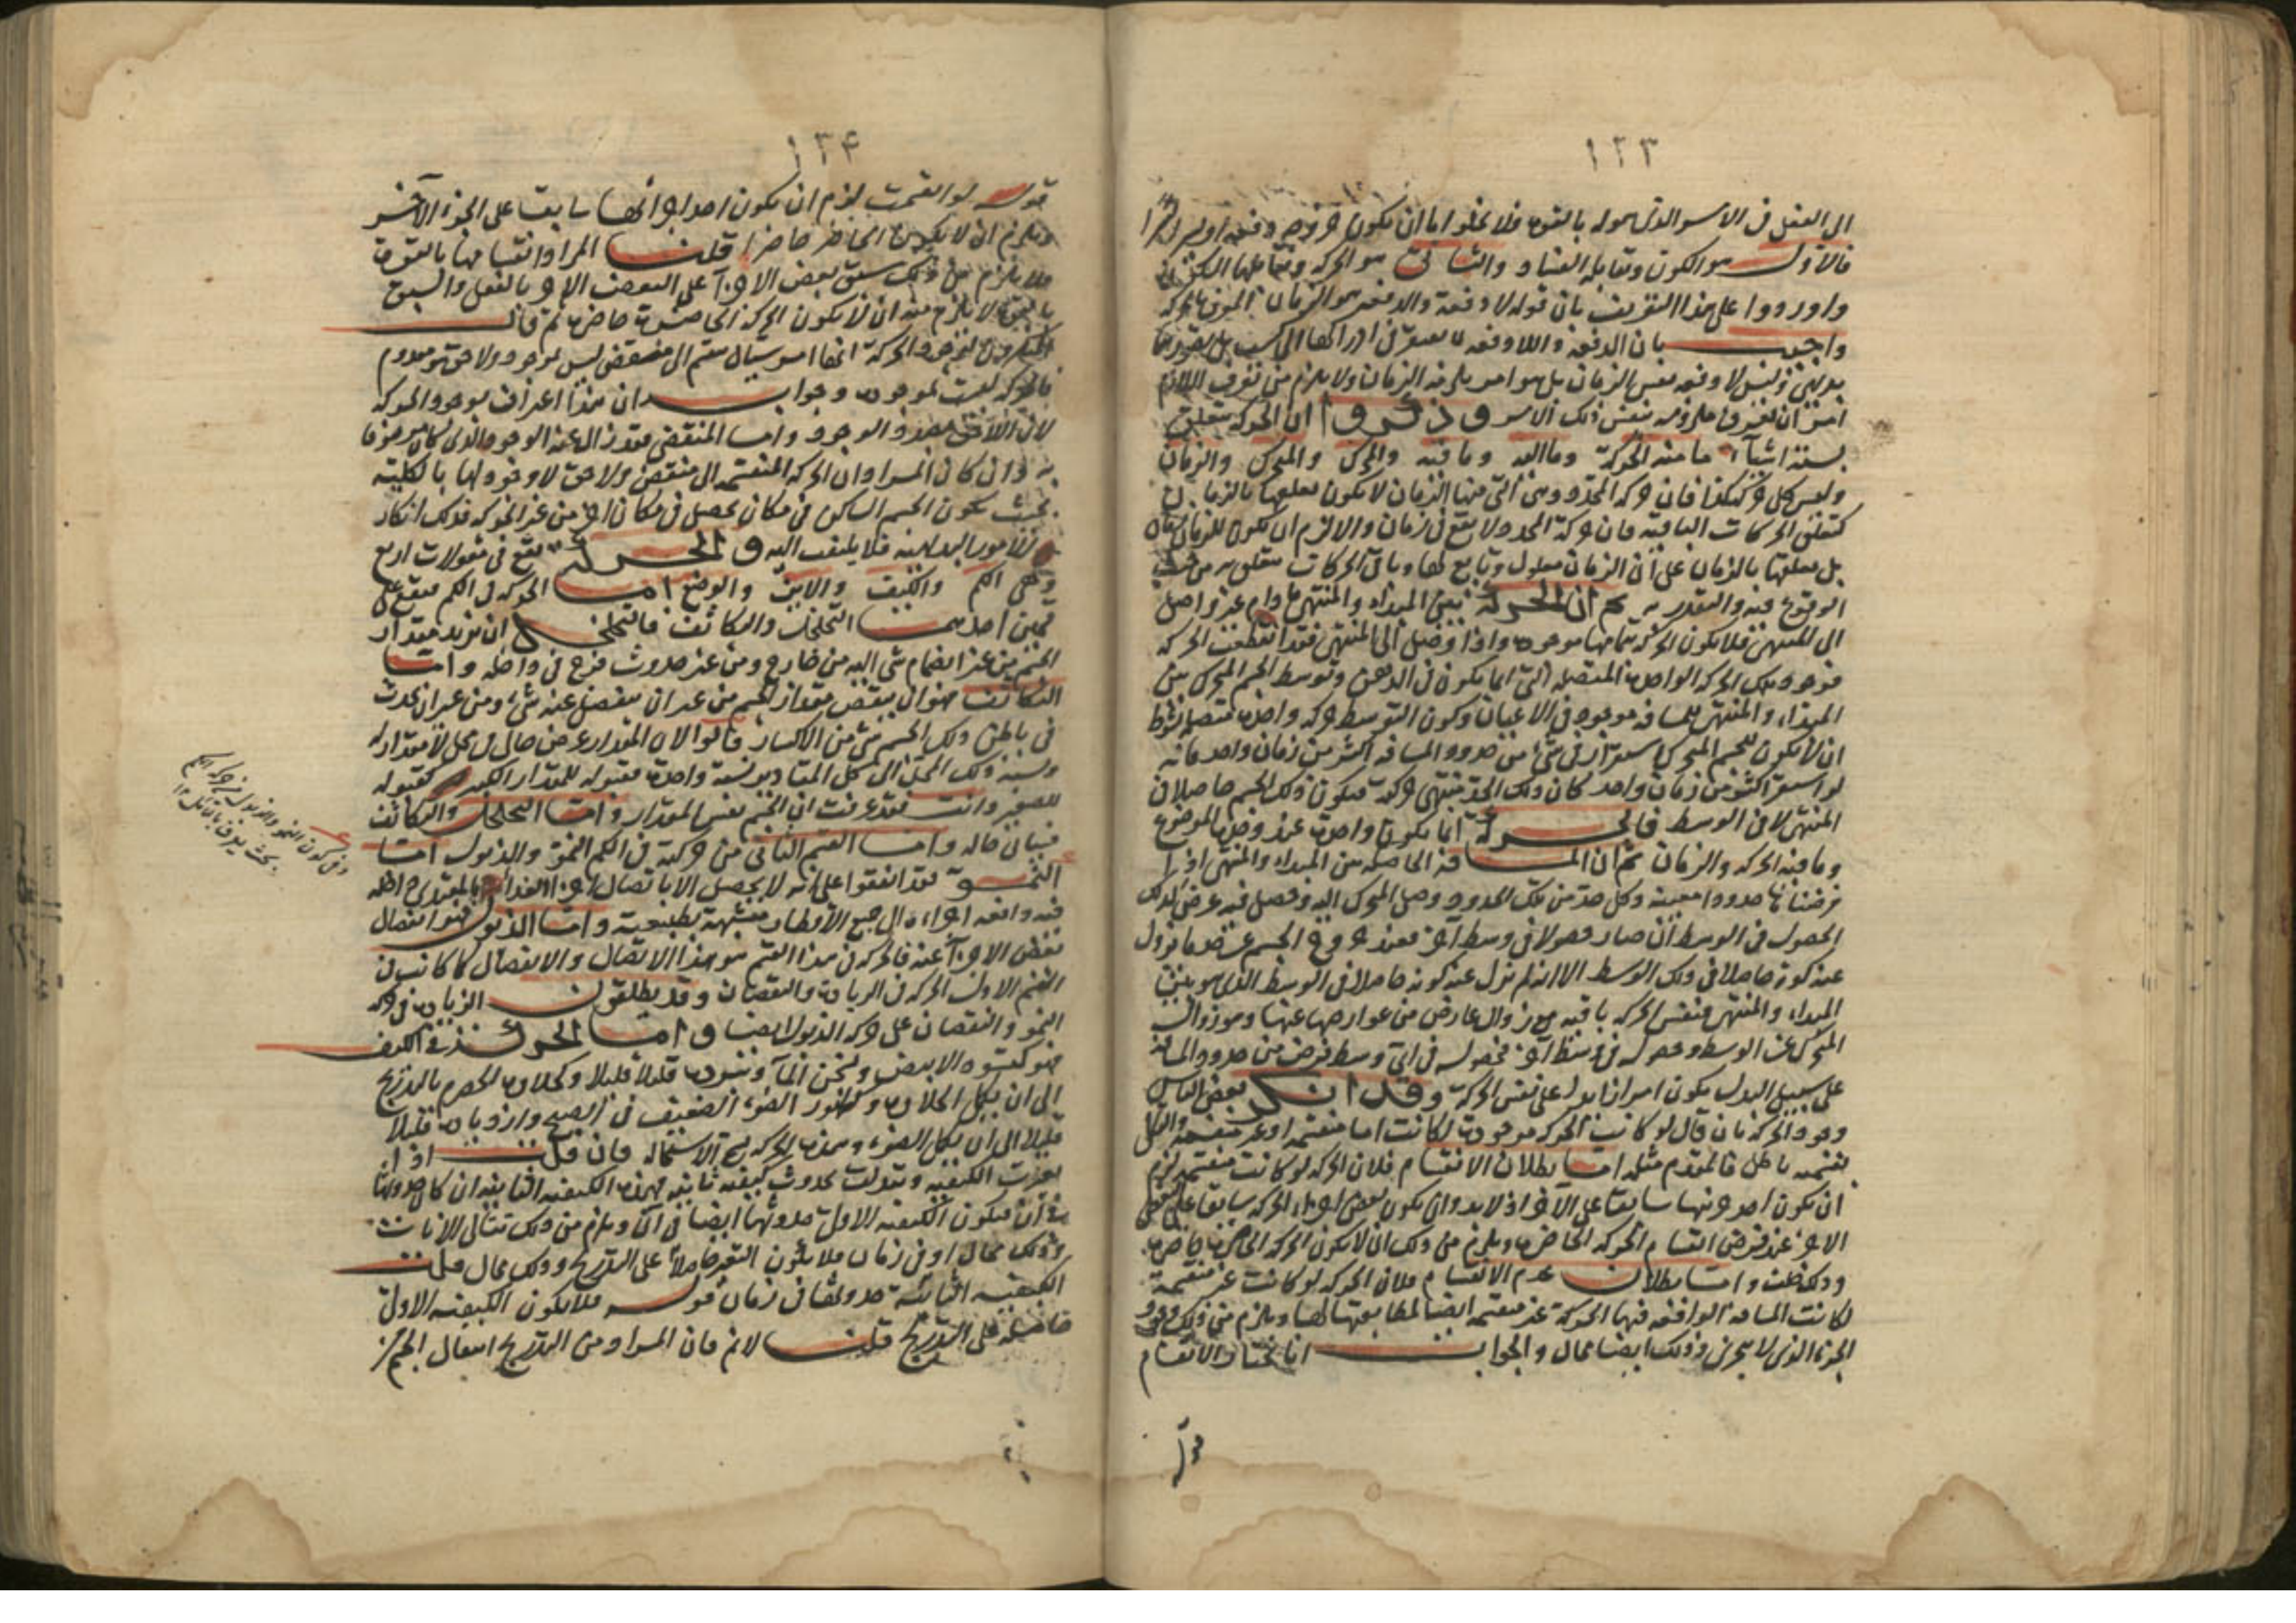 ١٣٣
الى الفعل فى الامر الذى هو له بالقوة فلا يخلو اما ان يكون خروجه دفعة او يسيرا
فالاول هو الكون ويقابله الفساد والثانى هو الحركة ويقابلها السكون
واوردوا على هذا التعريف بان قوله لا دفعة والدفعة هو الزمان
واجيب بان الدفعة واللادفعة لا يفتقر فى ادراكها الى كسب بل تصورها
بديهى وليس لا دفعة نفس الزمان بل هو امر يلزمه الزمان ولا يلزم من تعرف اللازم
نفس ذلك الامر وذكروا ان الحركة متعلق
بستة اشياء ما منه الحركة وما اليه وما فيه والمحرك والمتحرك والزمان
وليس كل حركة كذا فان حركة المحدد وهى التى منها الزمان لا يكون تعلقها بالزمان
كتعلق الحركات الباقية فان حركة المحدد لا يقع فى زمان والا لزم ان يكون للزمان زمان
بل تعلقها بالزمان على ان الزمان معلول وتابع لها وباقى الحركات متعلق به من حيث
الوقوع فيه والتقدر به ثم ان الحركة بين المبداء والمنتهى ما دام غير واصل
الى المنتهى فلا يكون الحركة بتمامها موجودة واذا وصل الى المنتهى فقد انقطعت الحركة
فوجود تلك الحركة الواحدة المتصلة انما يكون فى الذهن وتوسط الجسم المتحرك بين
المبداء والمنتهى للمسافة موجود فى الاعيان وكون التوسط حركة واحدة متصلة بشرط
ان لا يكون للجسم المتحرك استقرار فى شئ من حدود المسافة اكثر من زمان واحد فانه
لو استقر اكثر من زمان واحد كان ذلك الحد منتهى حركته فيكون ذلك الجسم حاصلا فى
المنتهى لا فى الوسط فالحركة انما يكون واحدة عند وحدة الموضوع
وما فيه الحركة والزمان ثم ان المسافة الحاصلة بين المبداء والمنتهى اذا
فرضنا لها حدودا معينة وكل حد من تلك الحدود وصل المتحرك اليه وحصل فيه عرض لذلك
الحصول فى الوسط ان صار حصولا فى وسط آخر فعند خروج الجسم عن حد ما يزول
عنه كونه حاصلا فى ذلك الوسط الا انه لم يزل عنه كونه حاصلا فى الوسط الذى هو بين
المبداء والمنتهى فنفس الحركة باقية مع زوال عارض من عوارضها عنها وهو زوال
المتحرك عن الوسط وحصوله فى وسط آخر فحصوله فى اى وسط فرض من حدود المسافة
على سبيل البدل يكون امرا زايدا على نفس الحركة وقد انكر بعض الناس
وجود الحركة بان قال لو كانت الحركة موجودة لكانت اما منقسمة او غير منقسمة والتالى
بقسميه باطل فالمقدم مثله اما بطلان الانقسام فلان الحركة لو كانت منقسمة لزم
ان يكون احد جزئيها سابقا على الآخر اذ لا بد وان يكون بعض اجزاء الحركة سابقا على البعض
الاخر عند فرض انقسام الحركة الحاضرة ويلزم من ذلك ان لا يكون الحركة الحاضرة حاضرة
وذلك خلف واما بطلان عدم الانقسام فلان الحركة لو كانت غير منقسمة
لكانت المسافة الواقعة فيها الحركة غير منقسمة ايضا لمطابقتها لها ويلزم من ذلك وجود
الجزء الذى لا يتجزى وذلك ايضا محال والجواب انا نختار الانقسام
قوله
١٣۴
قوله لو انقسمت لزم ان يكون احد اجزائها سابقا على الجزء الآخر
ويلزم ان لا يكون الحاضر حاضرا قلنا المراد انقسامها بالقوة
ولا يلزم من ذلك سبق بعض الاجزاء على البعض الاخر بالفعل والسبق
بالقوة لا يلزم منه ان لا يكون الحركة الحاضرة حاضرة ثم قال
المنكرون لوجود الحركة انها امر سيال منقسم الى منقض ليس بموجود ولاحق هو معدوم
فالحركة ليست بموجودة وجوابه ان هذا اعتراف بوجود الحركة
لان اللاحق بصدد الوجود واما المنقضى فقد زال عنه الوجود الذى كان موصوفا
به وان كان المراد ان الحركة المنقسمة الى منقض ولاحق لا وجود لها بالكلية
بحيث يكون الجسم الساكن فى مكان يحصل فى مكان اخر من غير الحركة فذلك انكار
للامور البديهية فلا يلتفت اليه والحركة يقع فى مقولات اربع
وهى الكم والكيف والاين والوضع اما الحركة فى الكم فيقع على
قسمين احدهما التخلخل والتكاثف فالتخلخل ان يزيد مقدار
الجسم من غير انضمام شئ اليه من خارج ومن غير حدوث فرج فى داخله واما
التكاثف فهو ان ينقص مقدار الجسم من غير ان ينفصل عنه شئ ومن غير ان يحدث
فى باطن ذلك الجسم شئ من الانكسار قالوا لان المقدار عرض حال فى محل لا مقدار له
ونسبة ذلك المحل الى كل المقادير نسبة واحدة فقبوله للمقدار الكبير كقبوله
للصغير وانت فقد عرفت ان الجسم نفس المقدار واما التخلخل والتكاثف
فسيأتى حاله واما القسم الثانى من حركة فى الكم النمو والذبول اما
النمو فقد اتفقوا على انه لا يحصل الا باتصال اجزاء الغذاء بالمغتذى داخله
فيه دافعة اجزاءه الى جميع الاقطار متشبهة بطبيعته واما الذبول فهو انفصال
بعض الاجزاء عنه فالحركة فى هذا القسم هو هذا الاتصال والانفصال كما كانت فى
القسم الاول الحركة فى الزيادة والنقصان وقد يطلقون الزيادة على حركة
النمو والنقصان على حركة الذبول ايضا واما الحركة فى الكيف
فهو كتسود الابيض وتسخن الماء وتبرده قليلا قليلا وكحلاوة الحصرم بالتدريج
الى ان يكمل الحلاوة وظهور الضوء الضعيف فى الصبح وازدياده قليلا
قليلا الى ان يكمل الضوء وهذه الحركة تسمى الاستحالة فان قلت اذا
تغيرت الكيفية وتبدلت بحدوث كيفية ثانية فهذه الكيفية الثانية ان كان حدوثها
فى آن فيكون الكيفية الاولى حدوثها ايضا فى آن ويلزم من ذلك تتالى الآنات
وذلك محال او فى زمان فلا يكون التغير حاصلا على التدريج وذلك محال قلت
الكيفية الثانية حدوثها فى زمان قوله فلا يكون الكيفية الاولى
على التدريج قلنا لا نم فان المراد من التدريج انتقال الجسم
وفى كون النمو والذبول من حركة الكم
بحث يعرف بالتأمل ١٢